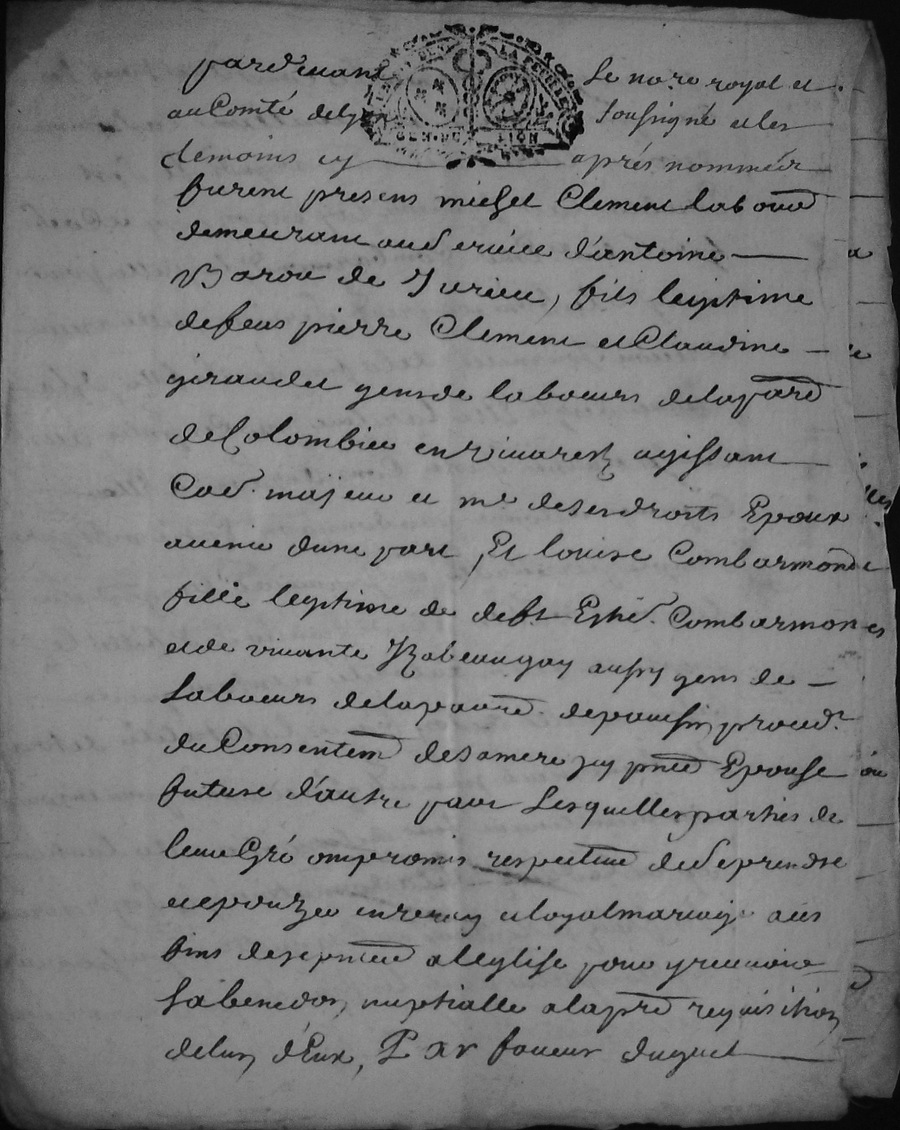 pardevant le no.re royal et
au Comté de soussigné et les
temoins cy aprés nommés
furent presens michel Clement labour
demeurant au service d'antoine
Barou de Jurieu, fils legitime
de feus pierre Clement et Claudine
giraudet gens de labeurs de la parr
de Colombier en vivarest agissant
Co.e majeur et m.e de ses droits Epoux
avenir d'une part, Et louise Combarmond
fille legitime de deft Esti. Combarmond
et de vivante Izabeau gay aussy gens de
labeurs de la parr. de proced.t
du Consentem de sa mere icy pnte Epouse
future d'autre part Lesquelles parties de
leur Gré ont promis respective de se prendre
et epouzer en vray et loyal mariage aux
fins de se pnter a l'eglise pour y recevoir
la bened.on nuptialle a la pre requisition
de l'un d'Eux, Par faveur duquel
GEN DE LION